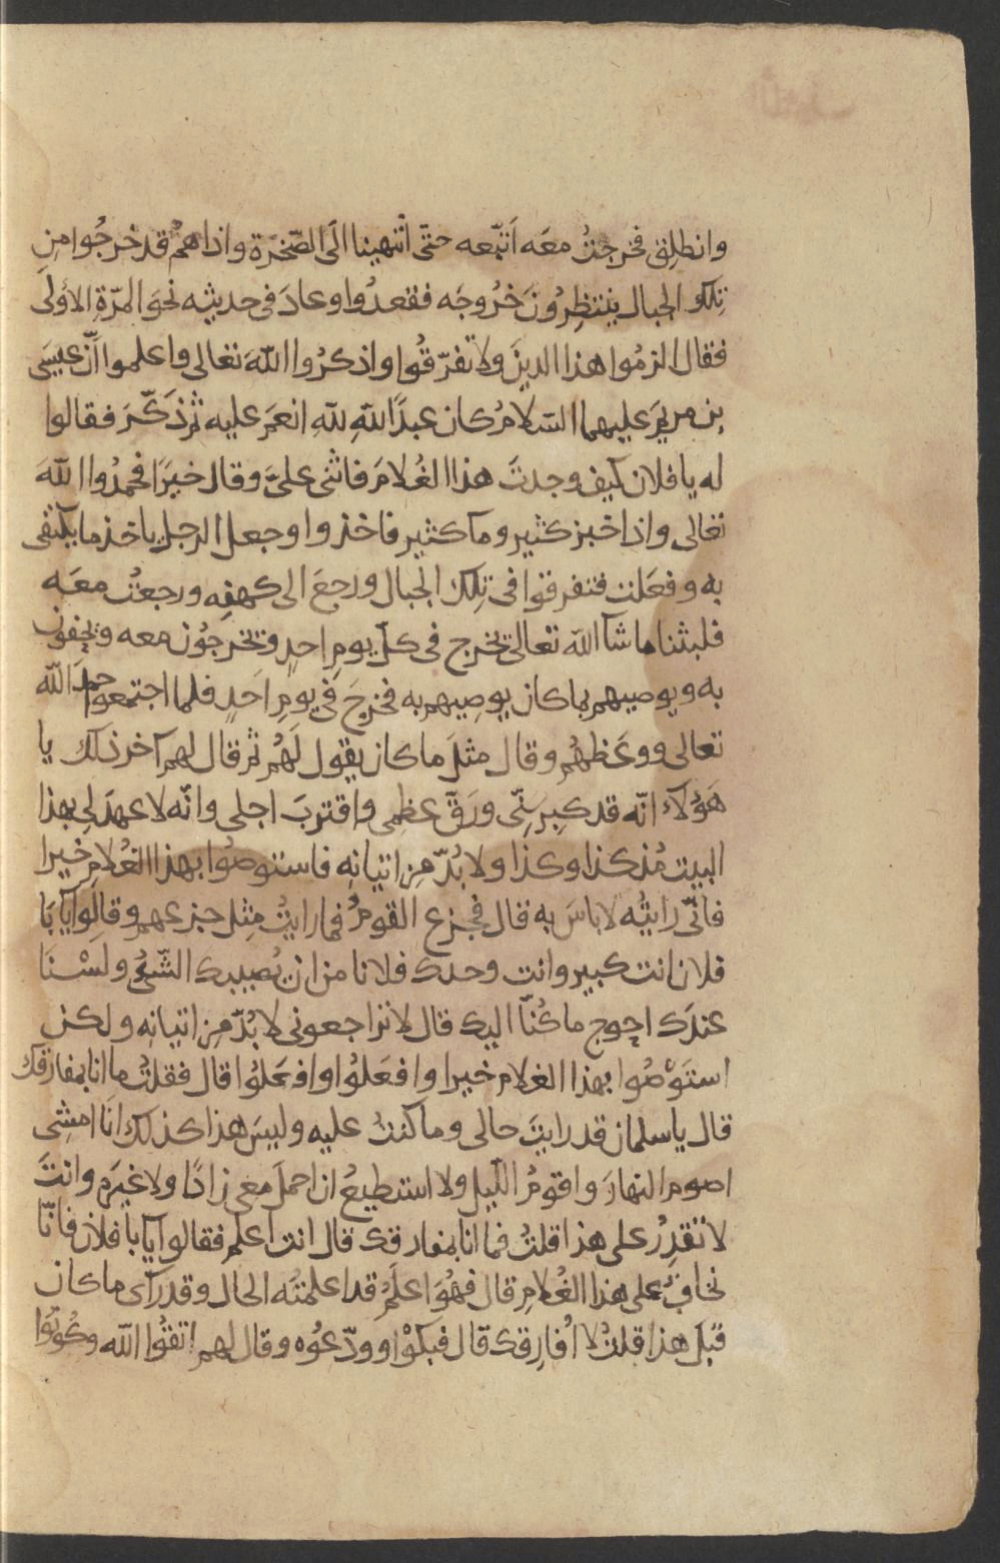 وانطلق فخرجتُ معَه اَتبّعه حتّى انتهينا الَى الصّخرَة واذا همُ قد خرجُوا مِن
تِلك الجبال ينتظِرُونَ خرُوجَه فقعدُوا وعادَ فى حديثِه نحوَ المرّةِ الاُولَى
فقال الزمُوا هذا الدينَ ولا تفرّقُوا واذكرُوا اللّهَ تعالى واعلموا اَنّ عيسَى
بن مريَمَ عليهما السّلامُ كان عبدًا للّهِ انعمَ عليه ثم ذَكّرَ فقالوا
له يا فلان كيف وجدتَ هذا الغُلامَ فاثنى علىَّ وقال خيَرًا فحمدُوا اللّهَ
تعالى واذا خبز كثير وما كثير فاخذوا وجعل الرجل ياخذ ما يكتفى
به وفعَلت فتفرقوا فى تِلك الجبال ورجعَ الى كهفِه ورجعتُ معَه
فلبثنا ما شآ اللّه تعالى يخرج فى كلّ يومِ احدٍ ويخرجوُن معه ويحفون
به ويوصيهم بما كان يوصِيهم به فخرجَ فى يومِ اَحدٍ فلما اجتمعوا حمدَ اللّه
تعالى ووعَظهُم وقال مثلَ ما كان يقول لَهُم ثم قال لهم آخر ذلك يا
هَؤُلآء انّه قد كبِر سِنّى ورَقّ عظمى واقتربَ اجلى وانّه لا عهدَ لِى بهذا
البيت مُذ كذا وكذا ولا بُدّ مِن اتيانِه فاستوصُوا بهذا الغُلامِ خيرا
فانّى رايتُه لا باسَ به قال فجزع القومُ فما رايتُ مِثل جزعهم وقالوا يا با
فلان انت كبير وانت وحدك فلا نامن ان يُصيبك الشّىُ ولسْنَا
عندَك احوج ما كُنّا اليك قال لا تراجعونى لا بُدّ مِن اتيانِه ولكن
استَوْصُوا بهذا الغلام خيرا وافعَلُوا وافعَلُوا قال فقلتُ ما انا بمفارقك
قال يا سلمان قد رايتَ حالى وما كنتُ عليه وليسَ هذا كذلك انَا امشِى
اصوم النهارَ واقومُ اللّيل ولا استطيعُ ان احملَ معى زادًا ولا غيَره وانتَ
لا تقدِرُ على هذا قلتُ فما انا بمفارقك قال انت اعلم فقالوا يا با فلان فانّا
نخافُ على هذا الغُلامِ قال فهُوَ اعلَمُ قد اعلمتُه الحال وقد رآى ما كان
قبَل هذا قلتُ لا اُفارِقك قال فبكوْا وودّعُوه وقال لهم اتقوُا اللّه وكُونُوا